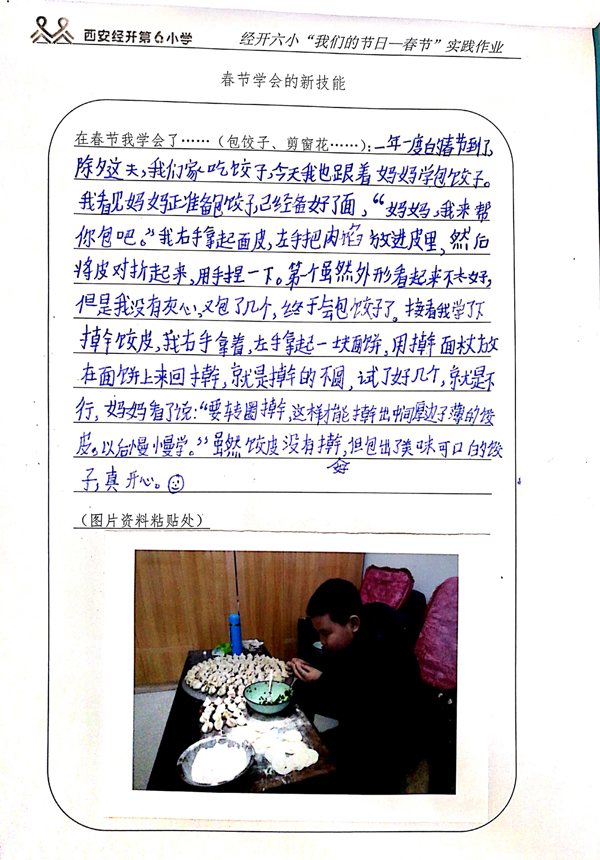 西安经开第6小学
经开六小“我们的节日—春节”实践作业
春节学会的新技能
在春节我学会了……（包饺子、剪窗花……）：一年一度的春节到了,
除夕这天,我们家吃饺子,今天我也跟着妈妈学包饺子。
我看见妈妈正准备包饺子,已经备好了面,“妈妈,我来帮
你包吧。”我右手拿起面皮,左手把肉馅放进皮里,然后
将皮对折起来,用手捏一下。第一个虽然外形看起来不太好,
但是我没有灰心,又包了几个,终于会包饺子了。接着我学了
擀饺皮,我右手拿着,左手拿起一块面饼,用擀面杖放
在面饼上来回擀,就是擀的不圆,试了好几个,就是不
行,妈妈看了说:“要转圈擀,这样才能擀出中间厚边子薄的饺
皮。以后慢慢学。”虽然饺皮没有擀好,但包出了美味可口的饺
子,真开心。
（图片资料粘贴处）